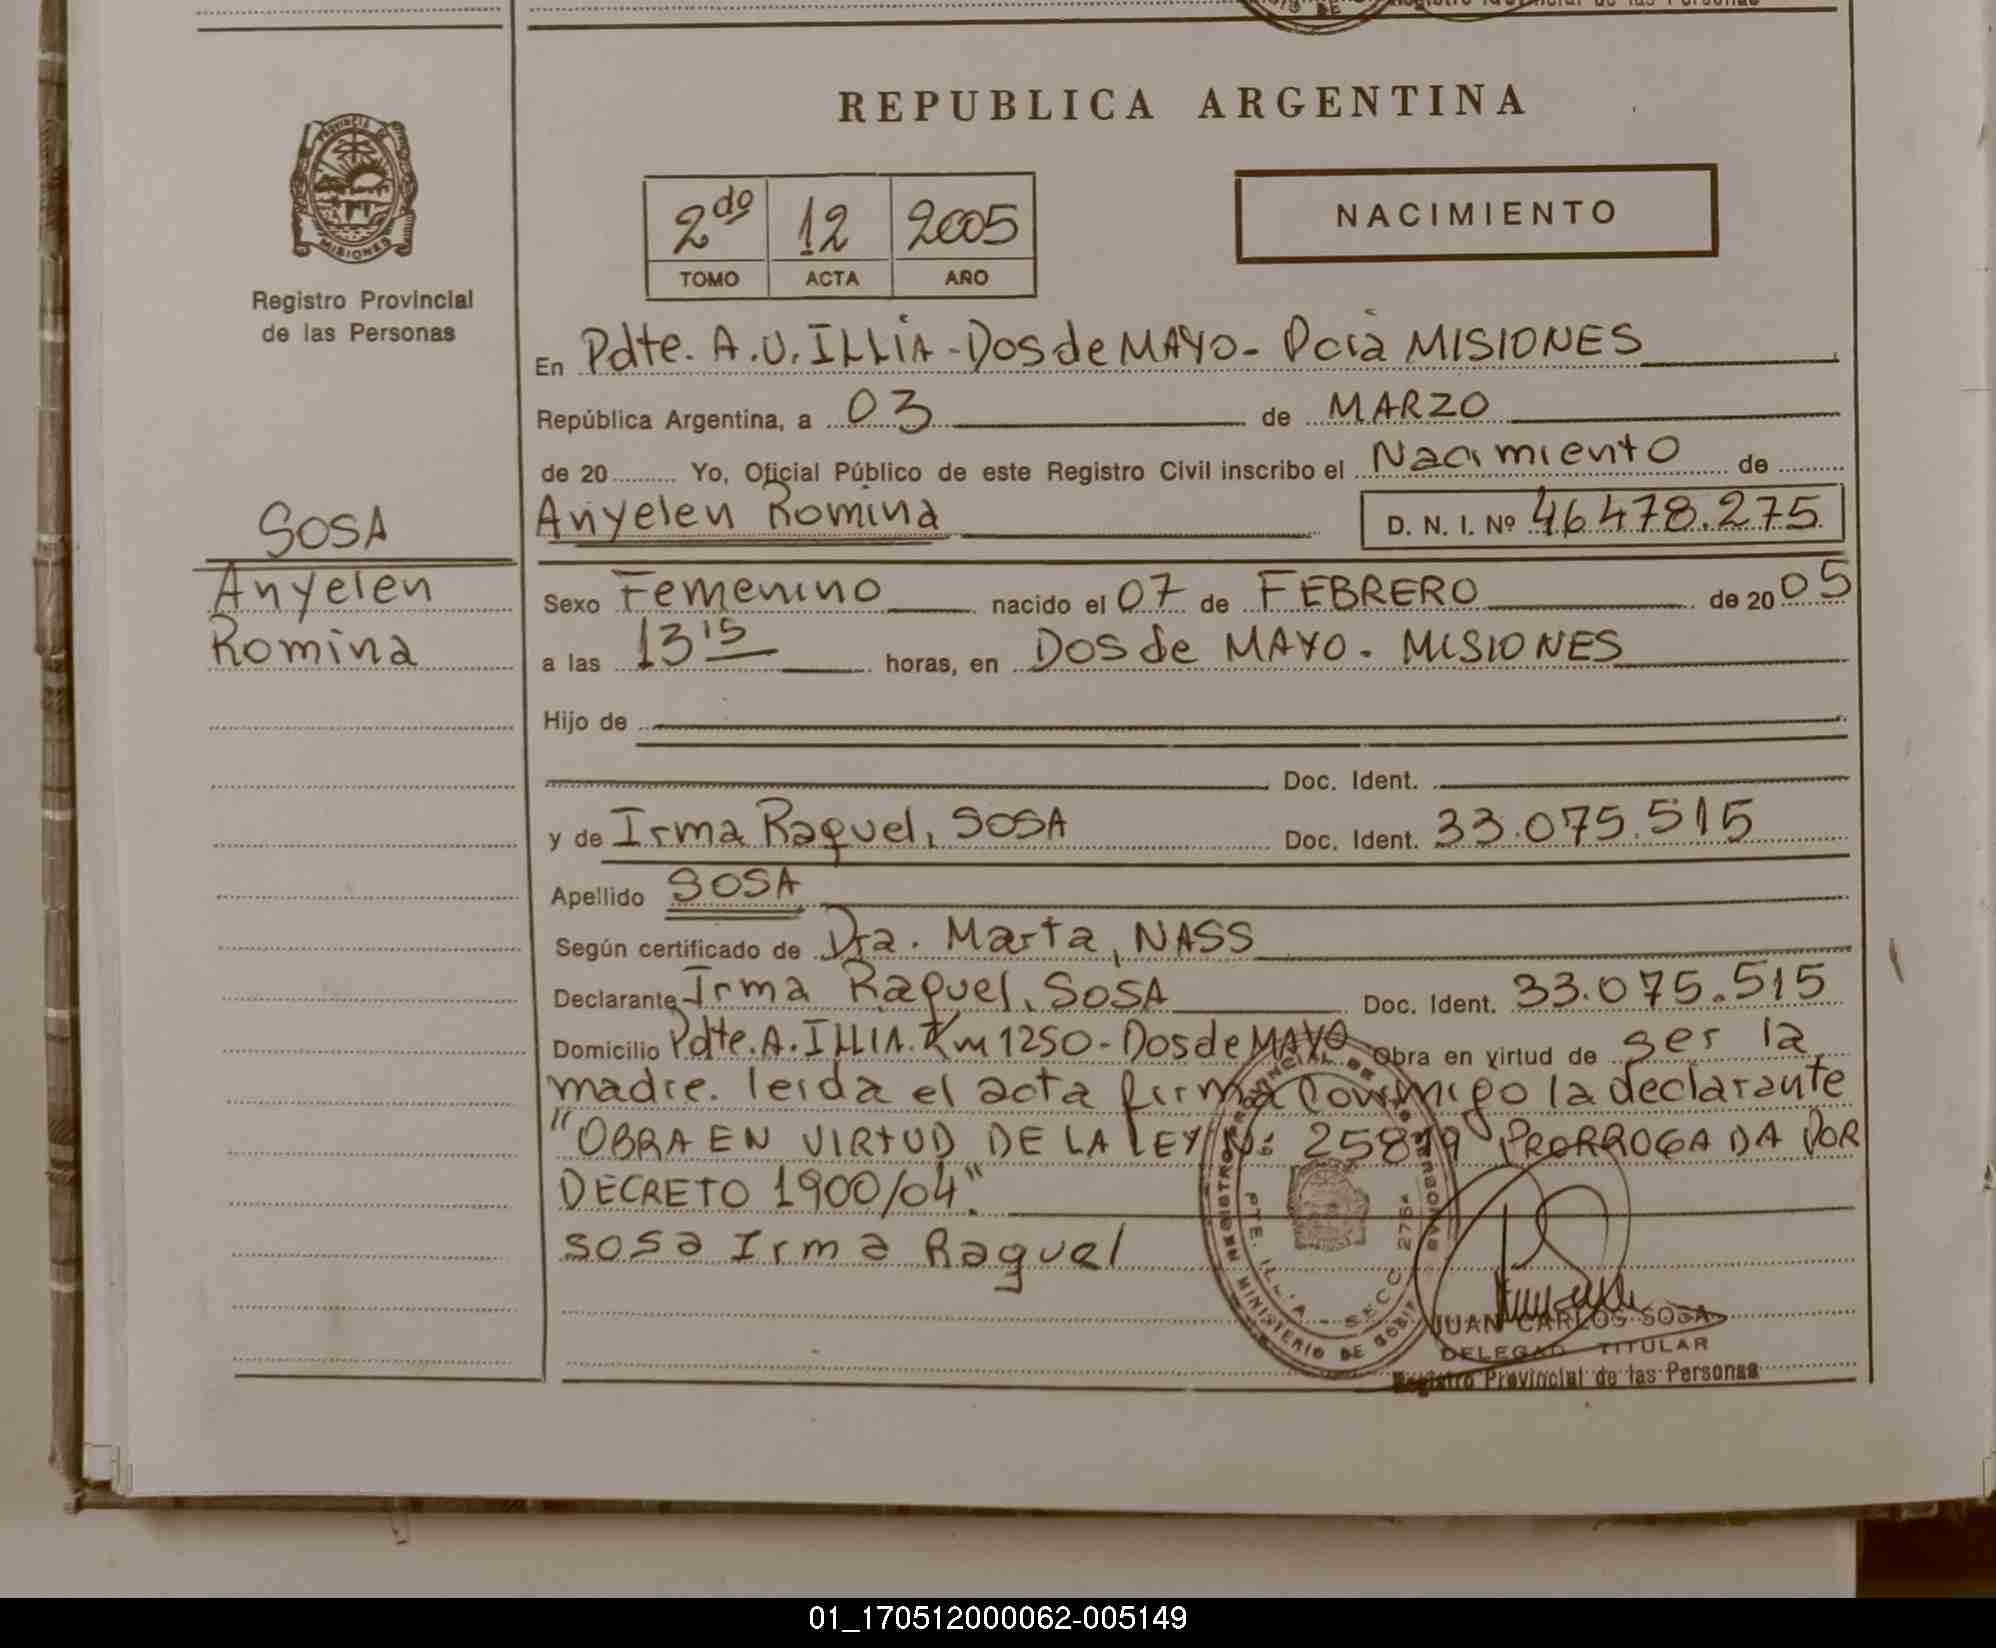 REPUBLICA ARGENTINA
PROVINCIA DE MISIONES
Registro Provincial
de las Personas
2do 12 2005
TOMO ACTA AÑO
NACIMIENTO
En Pdte. A.U. ILLIA - Dos de MAYO - Pcia MISIONES
República Argentina, a 03 de MARZO
de 20 Yo, Oficial Público de este Registro Civil inscribo el Nacimiento de
Anyelen Romina D. N. I. Nº 46478.275
SOSA
Anyelen
Romina
Sexo Femenino nacido el 07 de FEBRERO de 2005
a las 13 15 horas, en Dos de MAYO. MISIONES
Hijo de
Doc. Ident.
y de Irma Raquel, SOSA Doc. Ident. 33.075.515
Apellido SOSA
Según certificado de Dra. Marta, NASS
Declarante Irma Raquel, SOSA Doc. Ident. 33.075.515
Domicilio Pdte. A. ILLIA. Km 1250 - Dos de MAYO Obra en virtud de ser la
madre. leida el acta firma conmigo la declarante
"OBRA EN VIRTUD DE LA LEY Nº 25819 PRORROGADA POR
DECRETO 1900/04".
sosa Irma Raquel
REGISTRO PROVINCIAL DE LAS PERSONAS
PTE. ILLIA - SECC 275
MINISTERIO DE GOBIE
JUAN CARLOS SOSA
DELEGADO TITULAR
Registro Provincial de las Personas
01_170512000062-005149